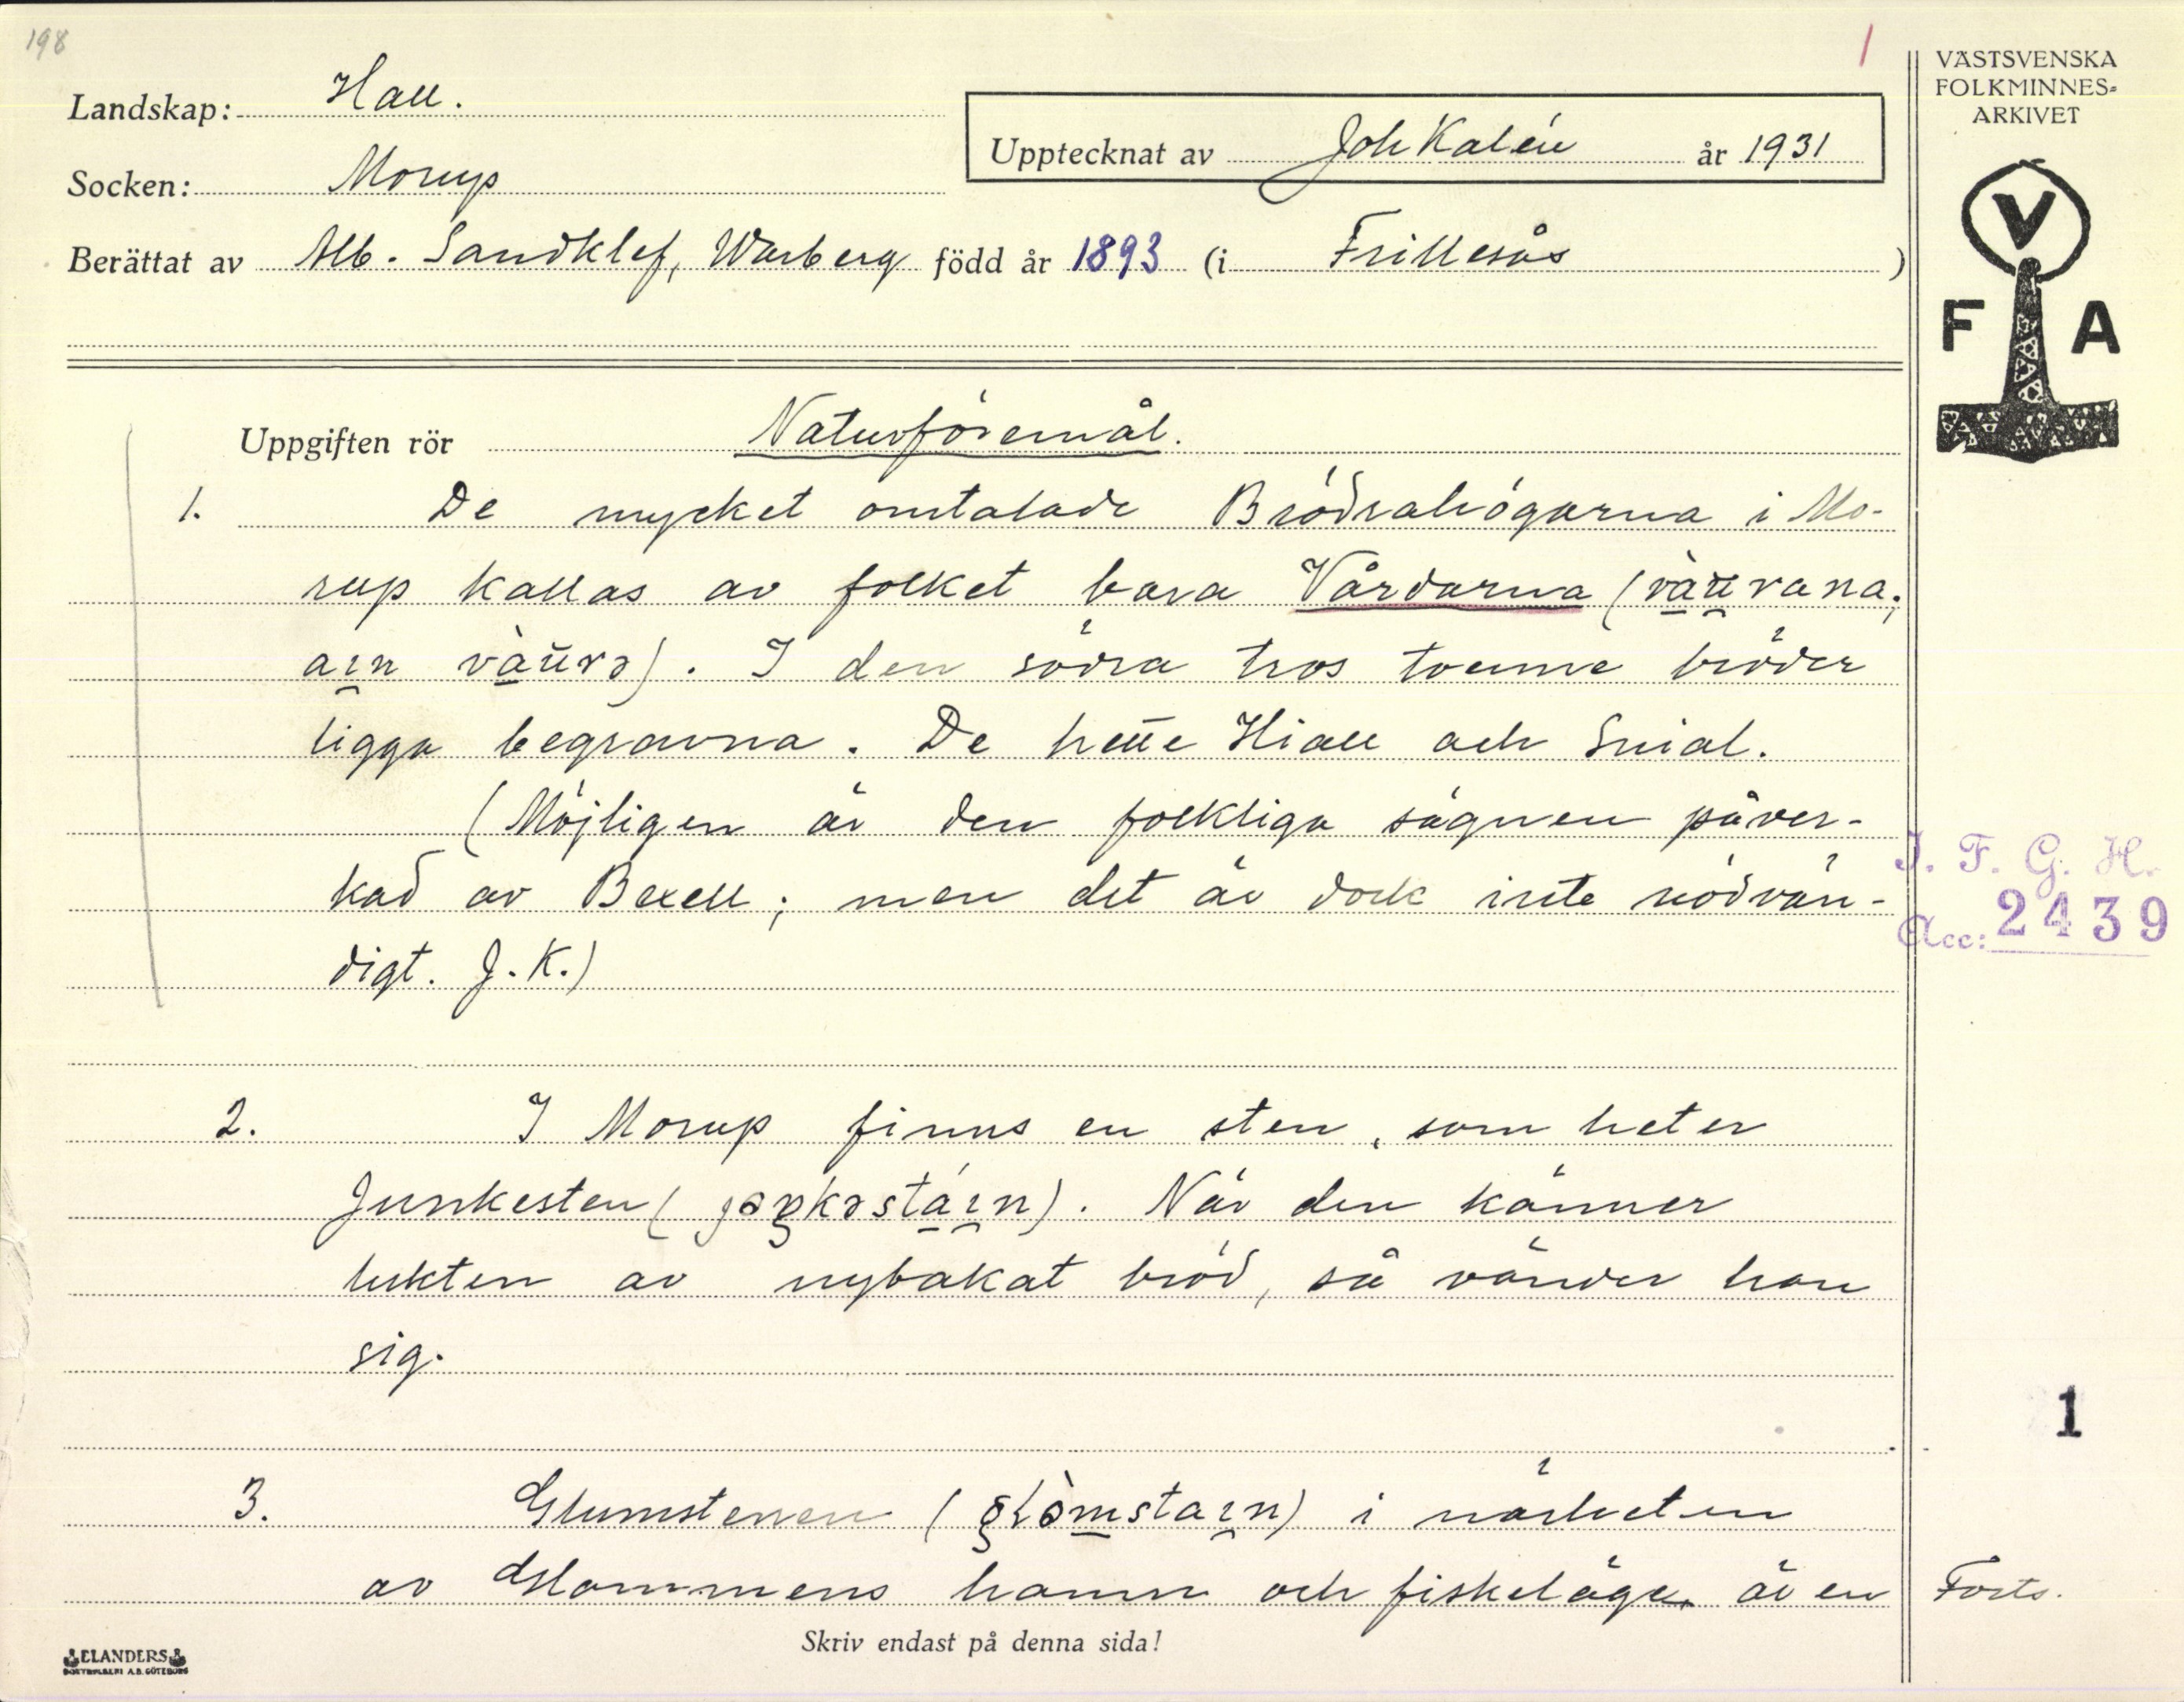 198
1
VÄSTSVENSKA
FOLKMINNES-
ARKIVET
Landskap: Hall.
Upptecknat av Joh Kalén år 1931
Socken: Morup
Berättat av Alb. Sandklef, Warberg född år 1893 (i Frillesås )
V
F A
Uppgiften rör Naturföremål.
1. De mycket omtalade Brödrahögarna i Mo-
rup kallas av folket bara Vårdarna
I den södra tros tvenne bröder
ligga begravna. De hette Hiall och Snial.
(Möjligen är den folkliga sägnen påver-
kad av Bexell; men det är dock inte nödvän-
digt. J.K.)
I. F. G. H.
Acc: 2439
2. I Morup finns en sten, som heter
Junkesten När den känner
lukten av nybakat bröd, så vänder han
sig.
1
3. Glumstenen i närheten
av Glommens hamn och fiskeläge är en
Forts.
Skriv endast på denna sida!
ELANDERS
BOKTRYCKERI A.B. GÖTEBORG